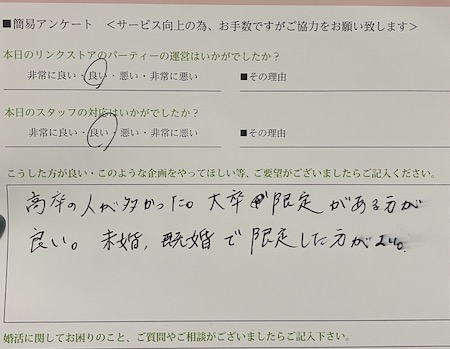 ■簡易アンケート <サービス向上の為、お手数ですがご協力をお願い致します>
本日のリンクストアのパーティーの運営はいかがでしたか?
非常に良い・良い・悪い・非常に悪い ■その理由
本日のスタッフの対応はいかがでしたか?
非常に良い・良い・悪い・非常に悪い ■その理由
こうした方が良い・このような企画をやってほしい等、ご要望がございましたらご記入ください。
高卒の人が多かった。大卒で限定がある方が
良い。未婚,既婚で限定した方がよい。
婚活に関してお困りのこと、ご質問やご相談がございましたらご記入下さい。